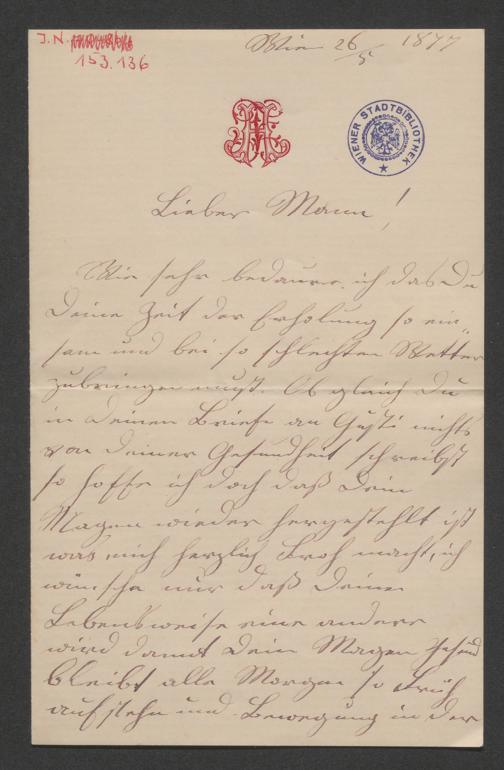 J. N.
153.136
Wien 26/5 1877
WIENER STADTBIBLIOTHEK
Lieber Mann!
Wie sehr bedaure ich das Du
Deine Zeit der Erholung so ein„
sam und bei so schlechten Wetter
zubringen mußt. Ob gleich Du
in Deinen Briefe an Gusti nichts
von Deiner Gesundheit schreibst
so hoffe ich doch daß Dein
Magen wieder hergestehlt ist
was mich herzlich Froh macht, ich
wünsche nur daß Deine
Lebensweise eine andere
wird damit Dein Magen Gesund
bleibt alle Morgen so Früh
aufstehn und Bewegung in der